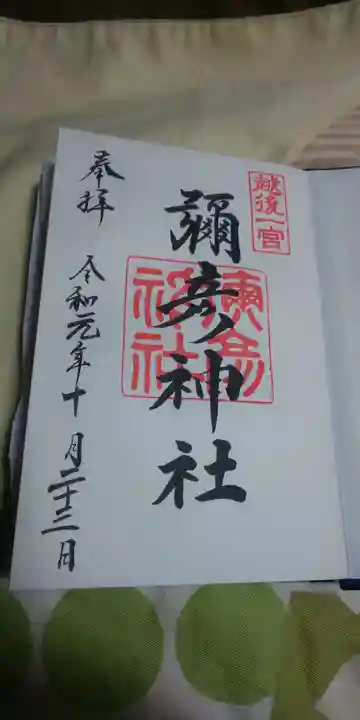 越後一宮
彌彦神社
奉拝
令和元年十月二十三日